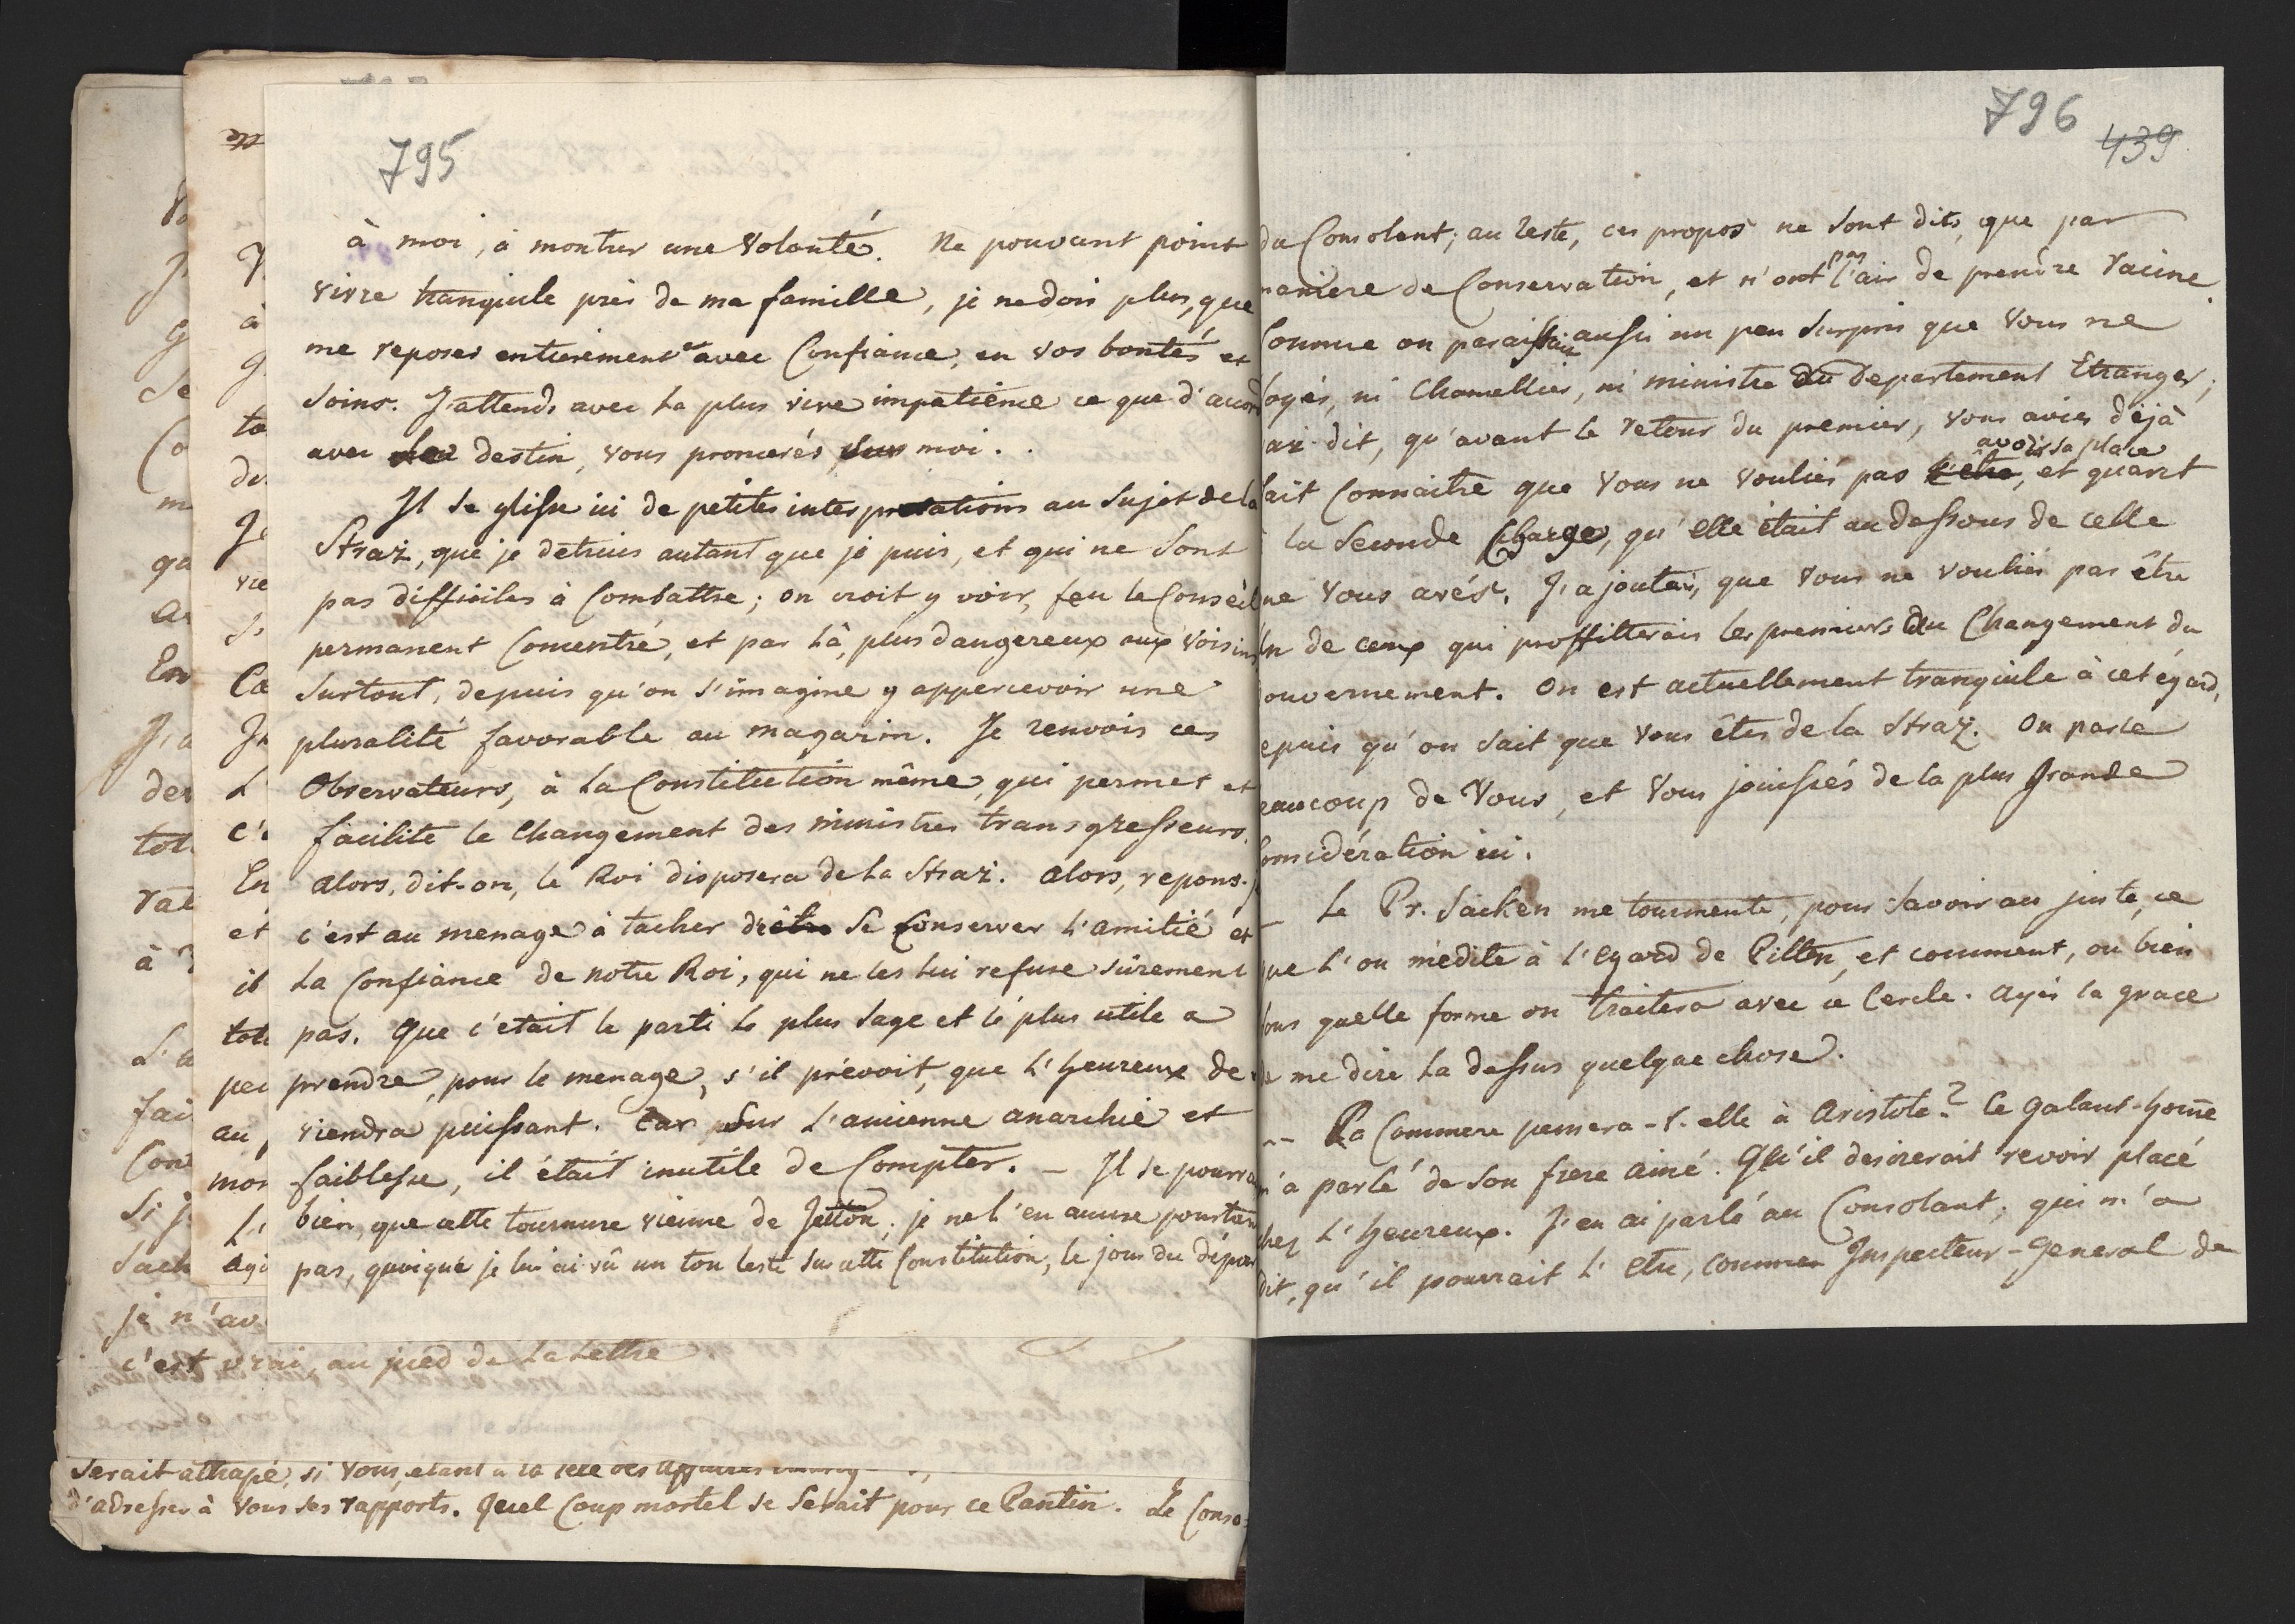 795
à moi, à montrer une Volonté. Ne pouvant point
vivre tranquile près de ma famille, je ne dois plus, que
me reposer entierement avec Confiance, en vos bontés et
soins. J'attends avec la plus vive impatience ce que d'accord
avec destin, vous prononcerés sur moi.
Il se glisse ici de petites interpretations au sujet de la
Straż, que je detruis autant que je puis, et qui ne sont
pas difficiles à Combattre; on croit y voir, feu le Conseil
permanent Concentré, et par là, plus dangereux aux voisins
surtout, depuis qu'on s'imagine y appercevoir une
pluralité favorable au magazin. Je renvois ces
Observateurs, à la Constitution même, qui permet et
facilite le Changement des ministres transgresseurs.
alors, dit-on, le Roi disposera de la Straż. alors, repons-je
c'est au menage à tacher d'être se Conserver l'amitié et
la Confiance de notre Roi, qui ne les lui refuse sûrement
pas. Que c'etait le parti le plus sage et le plus utile a
prendre, pour le menage, s'il prévoit, que l'heureux de-
viendra puissant. Car sur l'ancienne anarchie et
faiblesse, il était inutile de Compter. – Il se pourra
bien, que cette tournure vienne de Jetton; je ne l'en accuse pourtant
pas, quoique je lui ai vû un ton leste sur cette Constitution, le jour du départ
796
439
du Consolant; au reste, ces propos ne sont dits, que par
maniere de Conservation, et n'ont pas l'air de prendre racine.
Comme on paraissait aussi un peu surpris que Vous ne
soyés, ni Chancellier, ni ministre du Departement Etranger;
j'ai dit, qu'avant le retour du premier, vous aviés déjà
avoir sa place
fait Connaitre que Vous ne vouliés pas l'etre, et quant
à la seconde Charge, qu'elle était au dessous de celle
que Vous avés. J'ajoutai, que Vous ne vouliés pas être
un de ceux qui proffitterais les premiers du Changement du
Gouvernement. On est actuellement tranquile à cet égard,
depuis qu'on sait que Vous êtes de la Straż. On parle
beaucoup de Vous, et Vous jouissés de la plus grande
Considération ici.
– Le Pr. Sacken me tourmente, pour savoir au juste, ce
que l'on médite à l'egard de Pilten, et comment, ou bien
sous quelle forme on traitera avec ce Cercle. Ayés la grace
de me dire la dessus quelque chose.
– La Commere pensera-t-elle à Aristote? Ce galant-home
m'a parlé de son frere ainé. Qu'il desirerait revoir placé
chez l'heureux. J'en ai parlé au Consolant, qui m'a
dit, qu'il pourrait l'etre, comme Inspecteur-General de
je n'av
c'est vrai, au pied de la Lettre
serait attrapé, si Vous, etant a la tete des affaires
d'adresser à Vous ses rapports. Quel Coup mortel se serait pour ce Pantin. Le Conso-